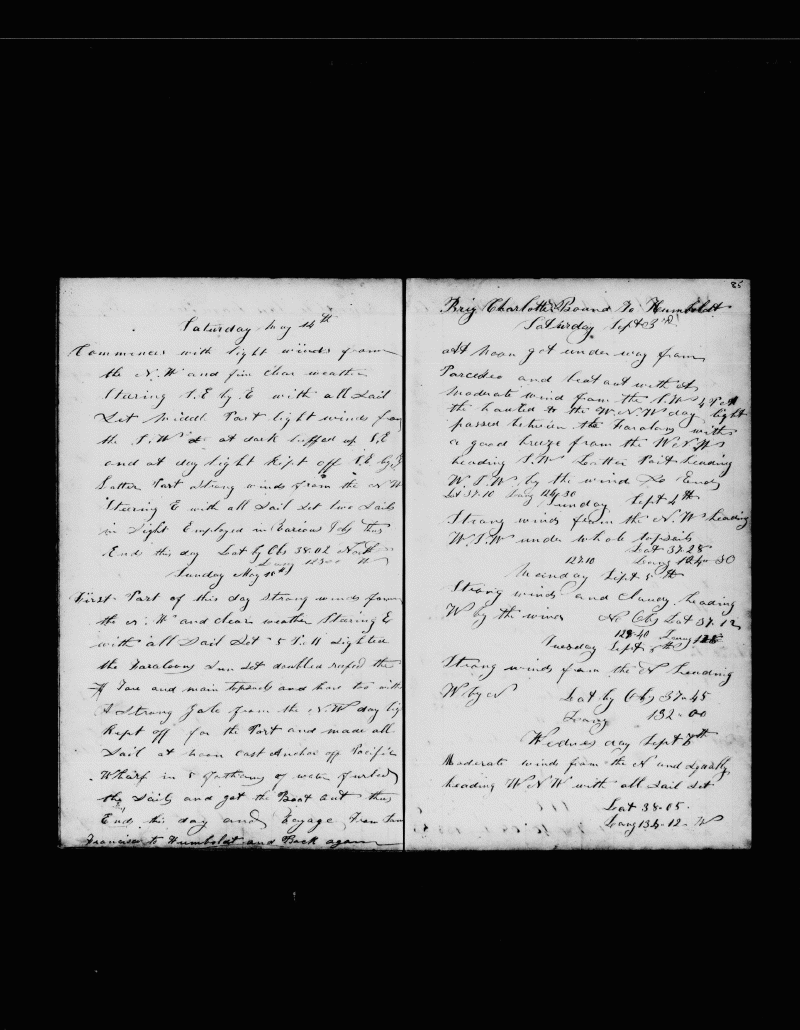 Saturday May 14th
Commences with light winds from
the N.W and fine clear weather
Stearing S.E by E with all Sail
Set Middle Part light winds from
the S.W & at dark luffed up S.E
and at day light Kept off S.E by E
Latter Part strong winds from the N W
Stearing E with all Sail Set two Sails
in Sight Employed in Various Jobs thus
Ends this day Lat by Obs 38.02 North
Long W
Sunday May 15th
First Part of this day Strong winds from
the N.W and clear weather Stearing E
with all Sail Set 5 P.M Sighted
the Faraleons Sun Set doubled reefed the
Fore and main topsails and hove too with
A Strong Gale from the N.W day lig
Kept off for the Port and made all
Sail at noon cast Anchor off Pacific
Wharf in 5 fathoms of water furled
the Sails and got the Boat out thus
Ends this day and Voyage From San
Francisco to Humboldt and Back again
85
Brig Charlotte Bound To Humboldt
Saturday Sept 3rd
att Noon got under way from
and beat out with A
moderate wind from the S.W 4 P.M
the hauled to the W.N.W day light
passed between the Faralons with
a good breeze from the W.N.W
heading S.W Latter Part heading
W.S.W by the wind So Ends
Lat 37.10 Long 124.30
Sunday Sept 4th
Strong winds from the N.W heading
W.S.W under whole topsails
Lat 37.28
127.10 Long
Monday Sept 5th
Strong winds and Cloudy heading
W by the wind No Obs Lat 37.12
129.40 Long
Tuesday Sept
Strong winds from the N heading
W by N Lat by Obs 37-45
Long 132-00
Wednesday Sept 6th
Moderate winds from the N and Squally
heading W N W with all Sail Set
Lat 38-05
Long 134-12- W